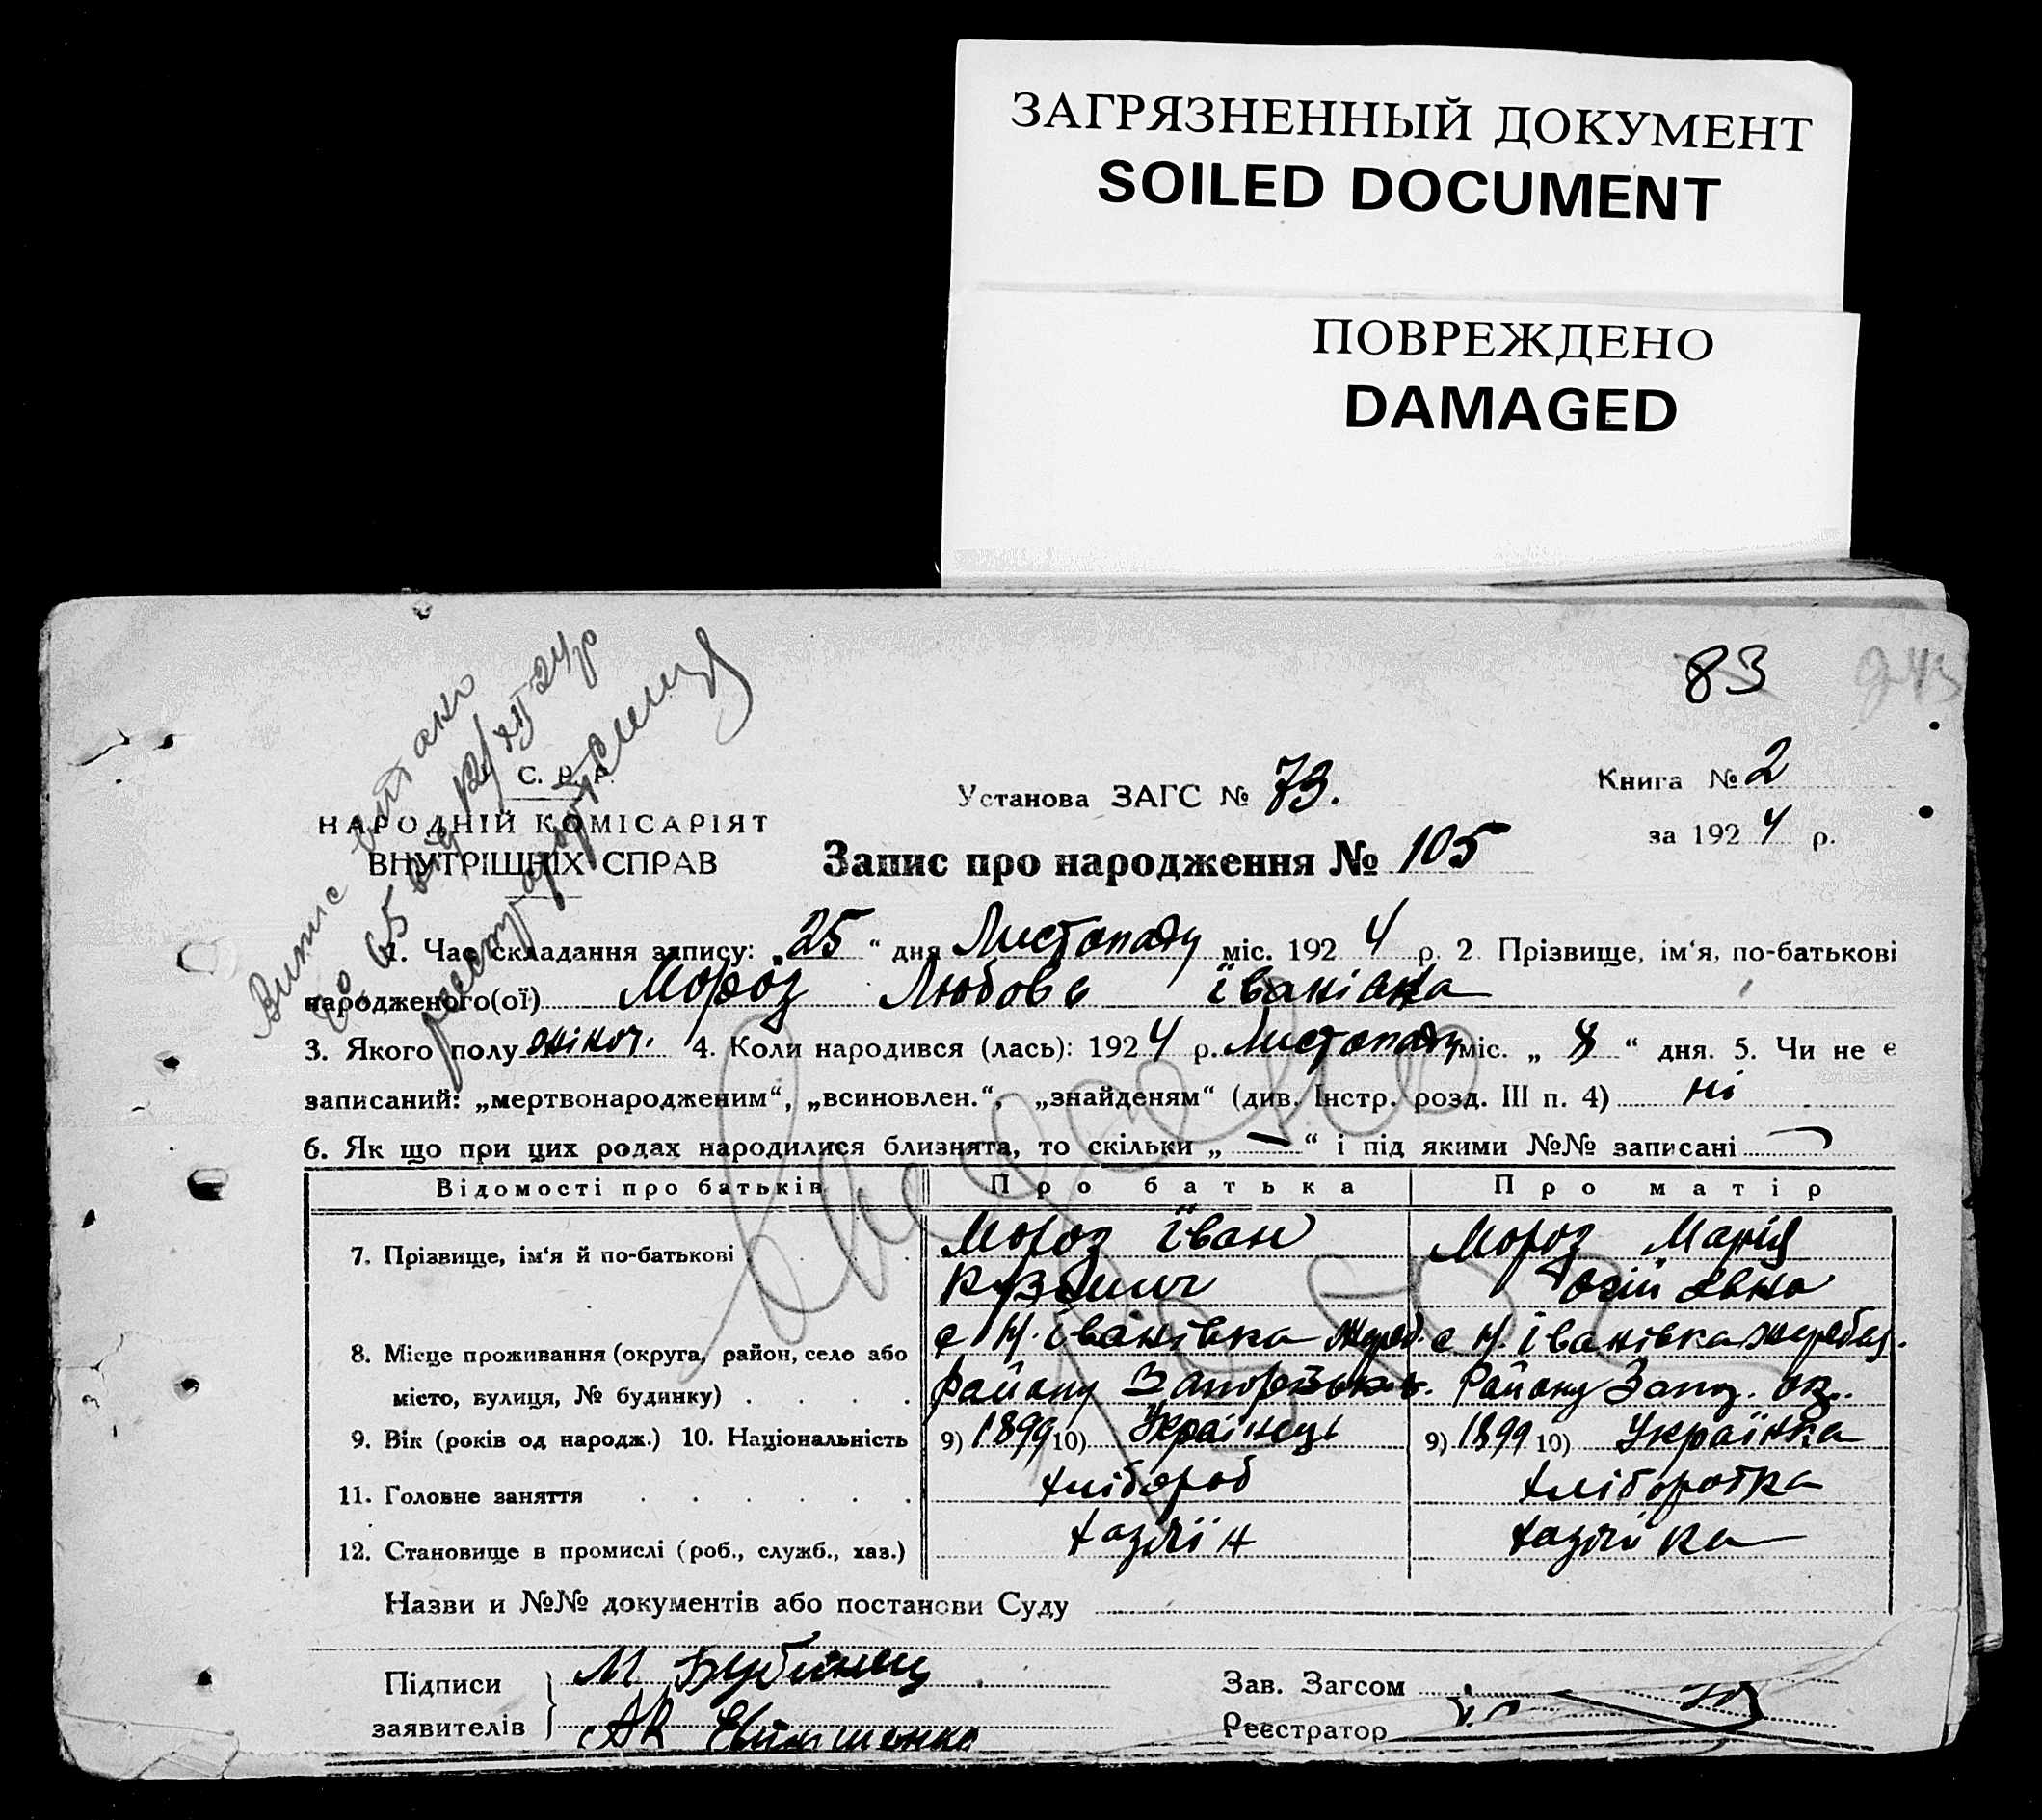 ЗАГРЯЗНЕННЫЙ ДОКУМЕНТ
SOILED DOCUMENT
ПОВРЕЖДЕНО
DAMAGED
83
Випис
65 від 12/XII 24р
С. Р. Р.
НАРОДНІЙ КОМІСАРІЯТ
ВНУТРІШНІХ СПРАВ
Установа ЗАГС № 73.
Книга № 2
за 1924 р.
Запис про народження № 105
1. Час складання запису: „25“ дня Листопаду міс. 1924 р. 2. Прізвище, ім‘я, по-батькові
народженого(ої) Мороз Любовь Їванівна
3. Якого полу жіноч. 4. Коли народився (лась): 1924 р. Листопаду міс. „8“ дня. 5. Чи не є
записаний: „мертвонародженим“, „всиновлен.“, „знайденям“ (див. Інстр. розд. III п. 4) ні
6. Як що при цих родах народилися близнята, то скільки „—“ і під якими №№ записані
Відомості про батьків Про батька Про матір
7. Прізвище, ім‘я й по-батькові Мороз Їван Мороз Марія
Кузьмич
8. Місце проживання (округа, район, село або с Н. Іванівка Жереб. с Н. Іванівка Жеребец.
місто, вулиця, № будинку) Району Району Запоз. ок.
9. Вік (років од народж.) 10. Національність 9) 1899 10) Українець 9) 1899 10) Українка
11. Головне заняття хлібороб хліборобка
12. Становище в промислі (роб., служб., хаз.) хазяїн хазяйка
Назви и №№ документів або постанови Суду
Підписи М
заявителів
Зав. Загсом
Реєстратор